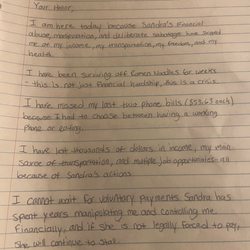 Your Honor,
I am here today because Sandra's financial
abuse, manipulation, and deliberate sabotage have
me my income, my transportation, my freedom, and my
health.
I have been surviving off Ramen Noodles for weeks
- this is not just financial hardship, this is a crisis.
I have missed my last two phone bills ($53.63 each)
because I had to choose between having a working
phone or eating.
I have lost thousands of dollars in income, my main
source of transportation, and multiple job opportunities all
because of Sandra's actions
I cannot wait for voluntary payments. Sandra has
spent years manipulating me and controlling me
Financially, and if she is not legally forced to pay,
She will continue to stall.